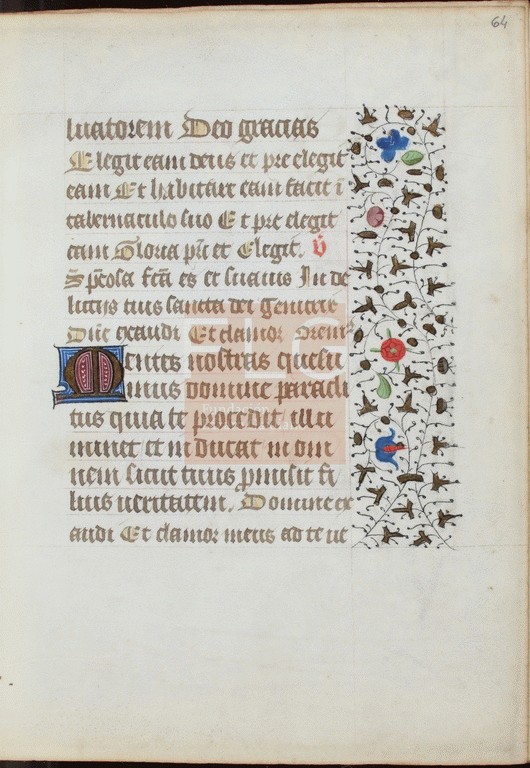 64
luatorem Deo gracias
Elegit eam deus et pre elegit
eam Et habitare eam facit ī
tabernaculo suo Et pre elegit
eam Gloria pr̄i et Elegit. v̄
Sp̄eosa fc̄a es et suauis In de
liciis tuis sancta dei genitrix
Dn̄e exaudi Et clamor Orem⁹
Mentes nostras quesu
mus domine paracli
tus qui a te procedit illu
minet et in ducat in om
nem sicut tuus p̄misit fi
lius ueritatem. Domine ex
audi Et clamor meus ad te ue